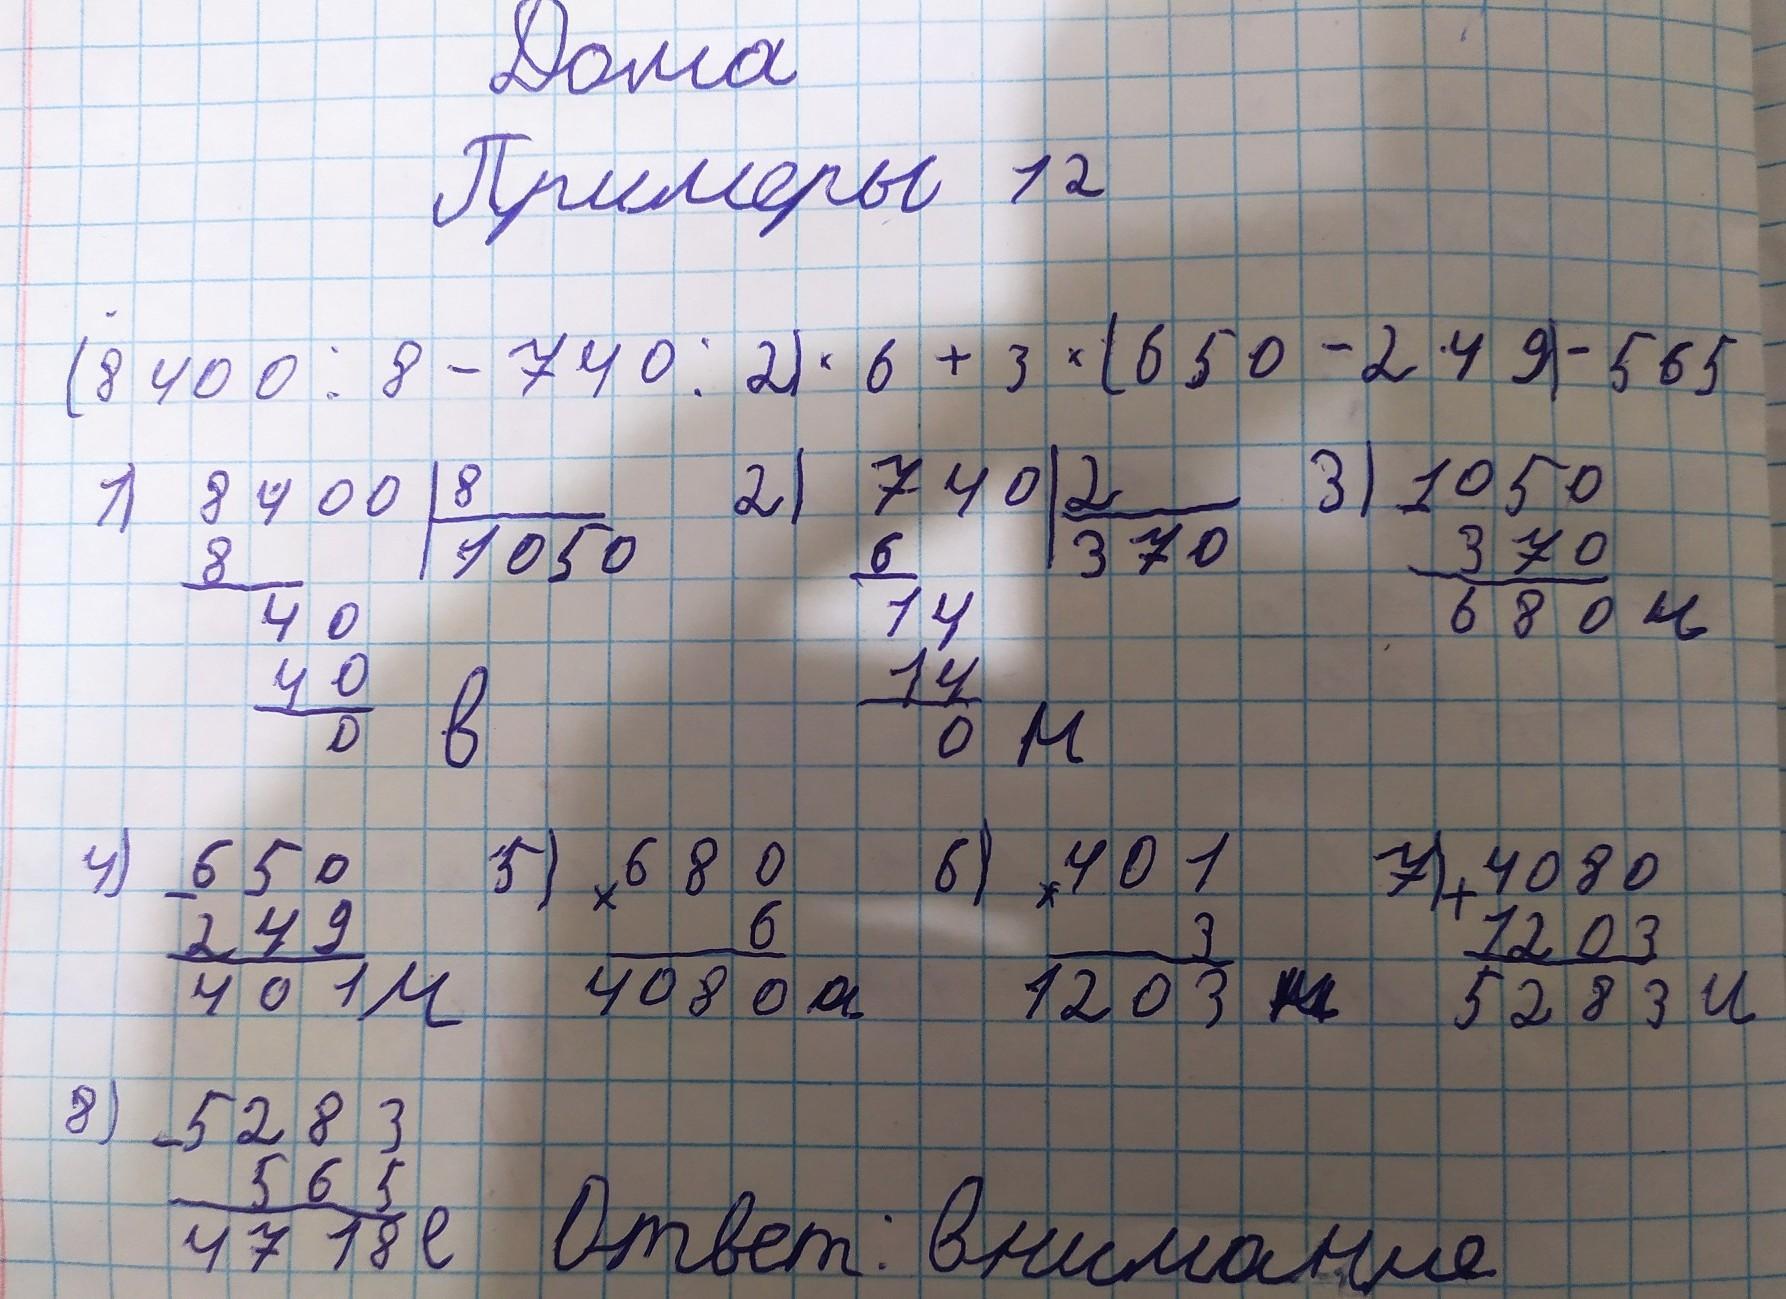 Дома
Примеры 12
(8400 : 8 - 740 : 2) · 6 + 3 · (650 - 249) - 565
1) 8400 | 8 2) 740 | 2 3) 1050
8 1050 6 370 370
40 14 680 и
40 14
0 в 0 н
4) - 650 5) × 680 6) × 401 7) + 4080
249 6 3 1203
401 м 4080 а 1203 н 5283 и
8) - 5283
565
4718 е Ответ: внимание